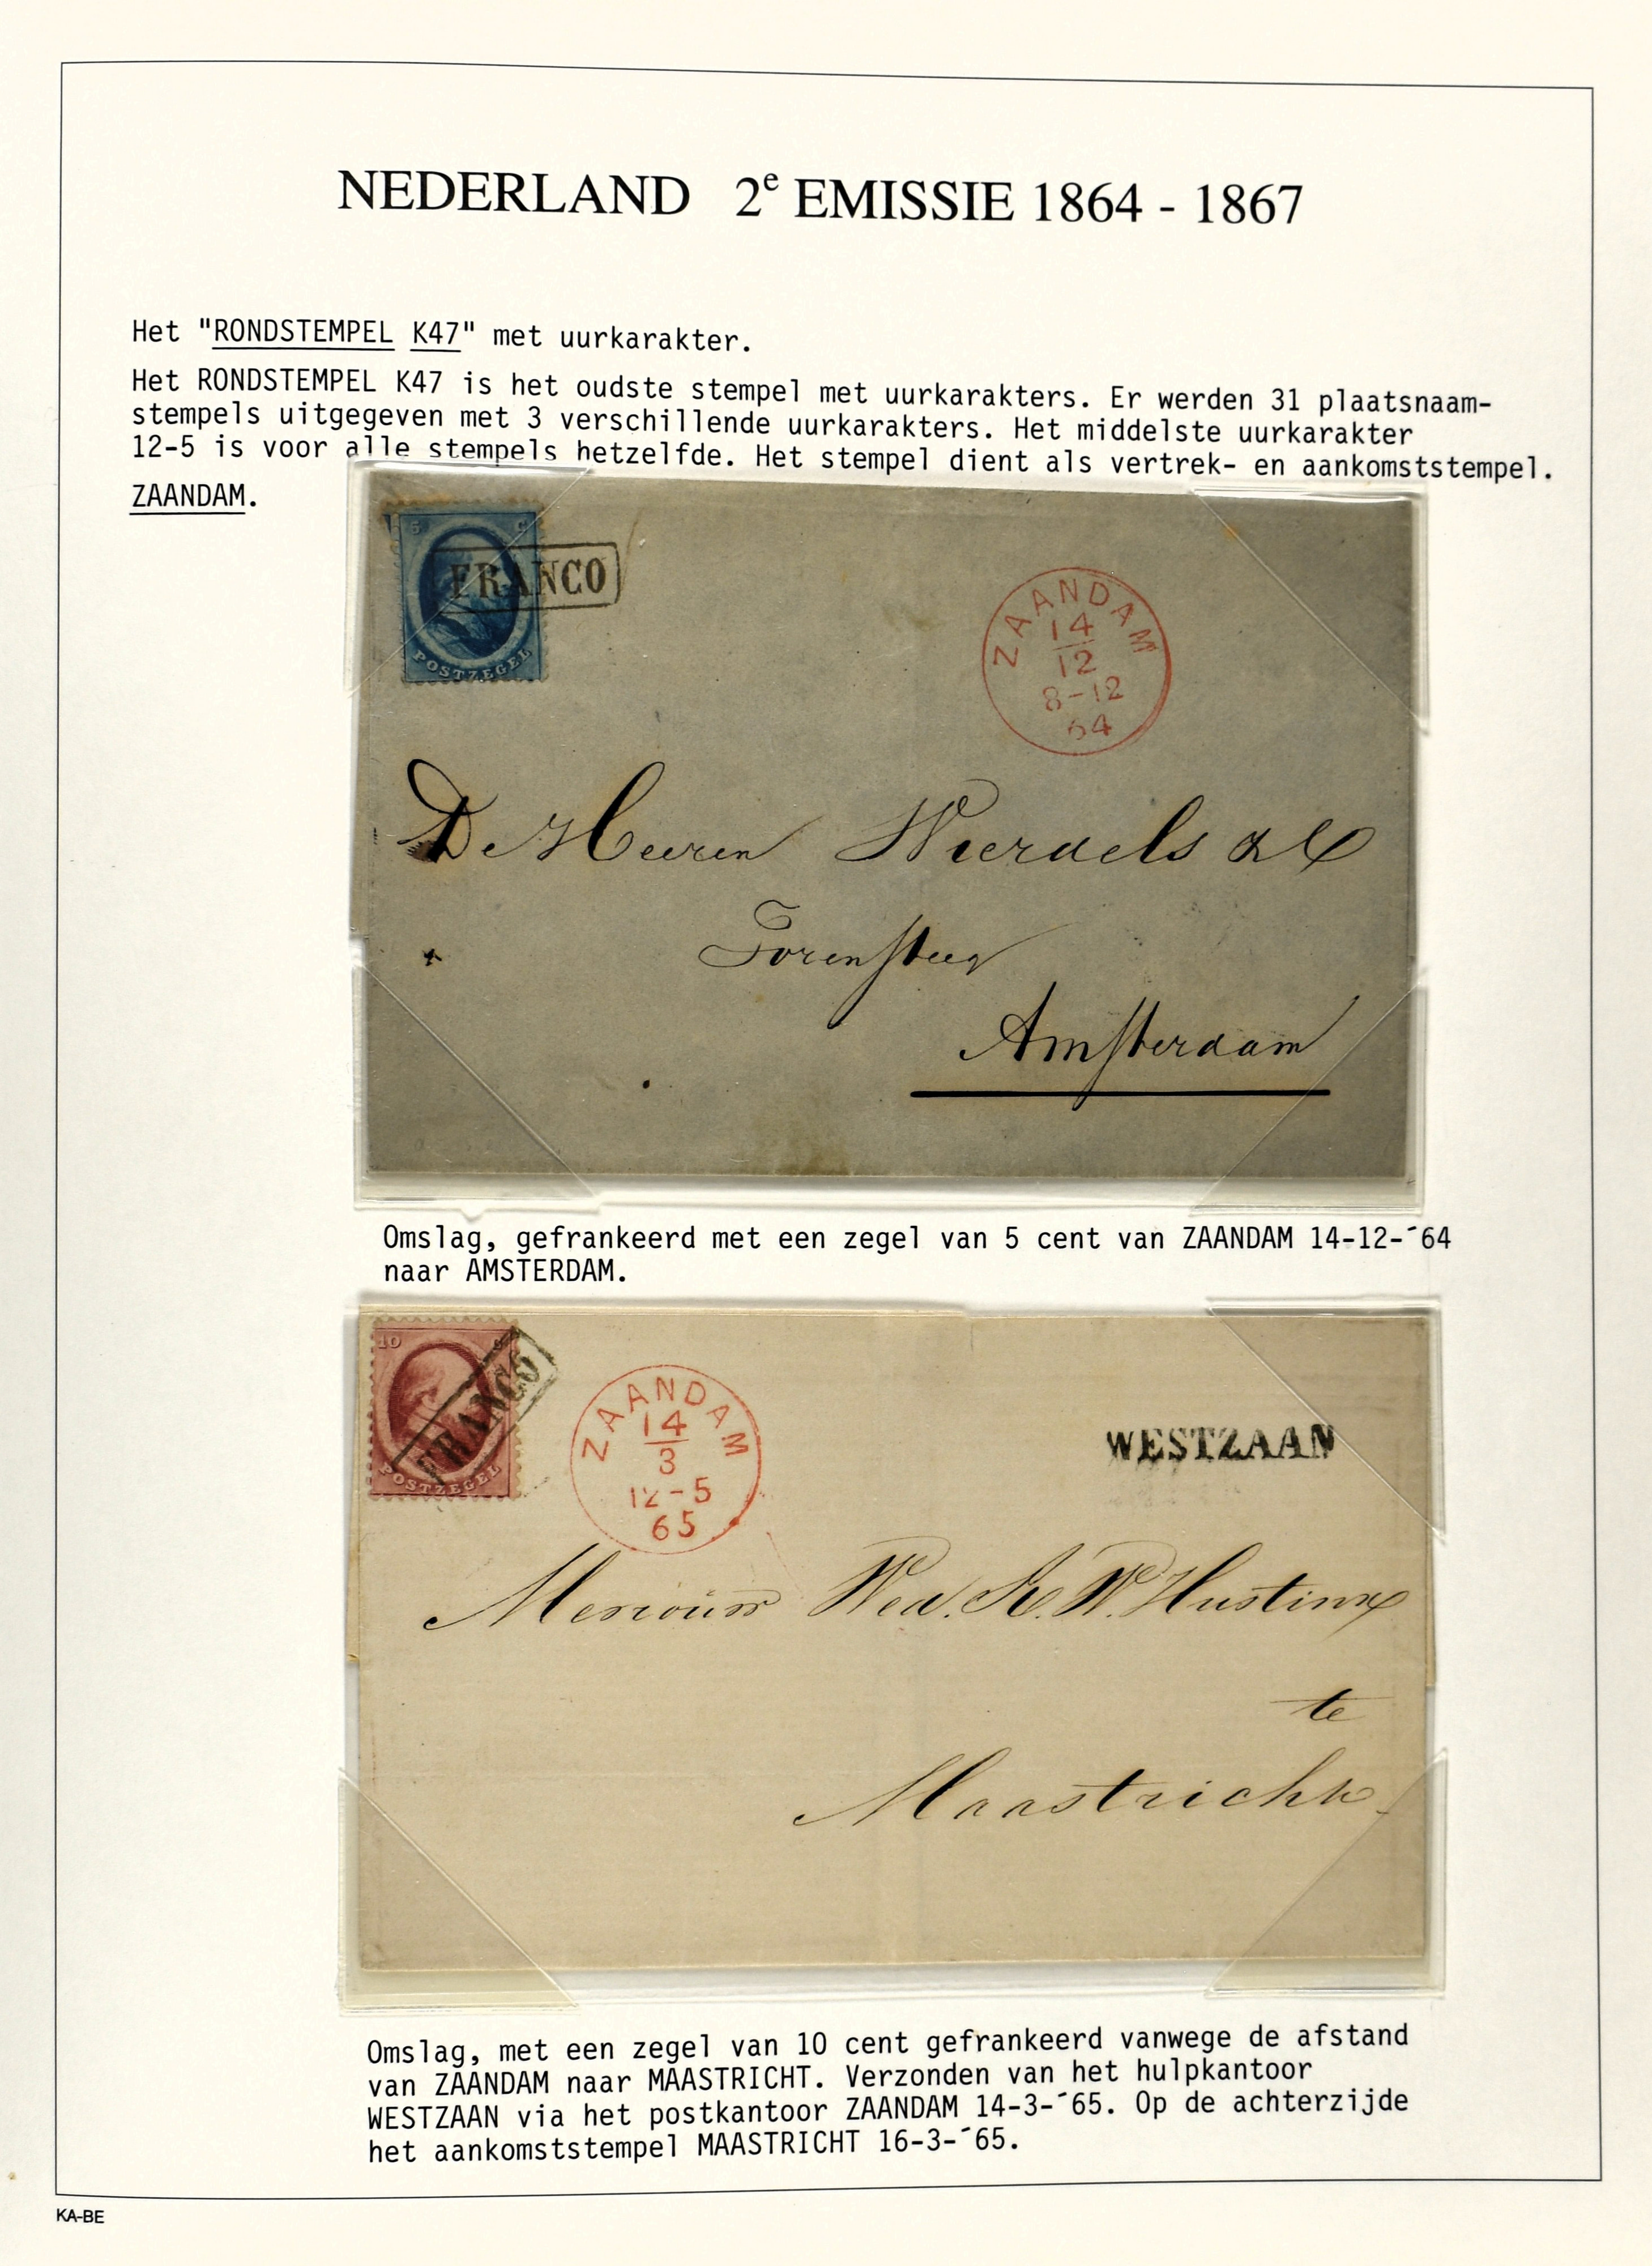 NEDERLAND 2e EMISSIE 1864 - 1867
Het "RONDSTEMPEL K47" met uurkarakter.
Het RONDSTEMPEL K47 is het oudste stempel met uurkarakters. Er werden 31 plaatsnaam-
stempels uitgegeven met 3 verschillende uurkarakters. Het middelste uurkarakter
12-5 is voor alle stempels hetzelfde. Het stempel dient als vertrek- en aankomststempel.
ZAANDAM.
5 C
POSTZEGEL
FRANCO
ZAANDAM
14
12
8-12
64
De Heeren
Torensteeg
Amsterdam
Omslag, gefrankeerd met een zegel van 5 cent van ZAANDAM 14-12-´64
naar AMSTERDAM.
10
POSTZEGEL
FRANCO
ZAANDAM
14
3
12-5
65
WESTZAAN
Wed. Hustinx
te
Maastricht
Omslag, met een zegel van 10 cent gefrankeerd vanwege de afstand
van ZAANDAM naar MAASTRICHT. Verzonden van het hulpkantoor
WESTZAAN via het postkantoor ZAANDAM 14-3-´65. Op de achterzijde
het aankomststempel MAASTRICHT 16-3-´65.
KA-BE